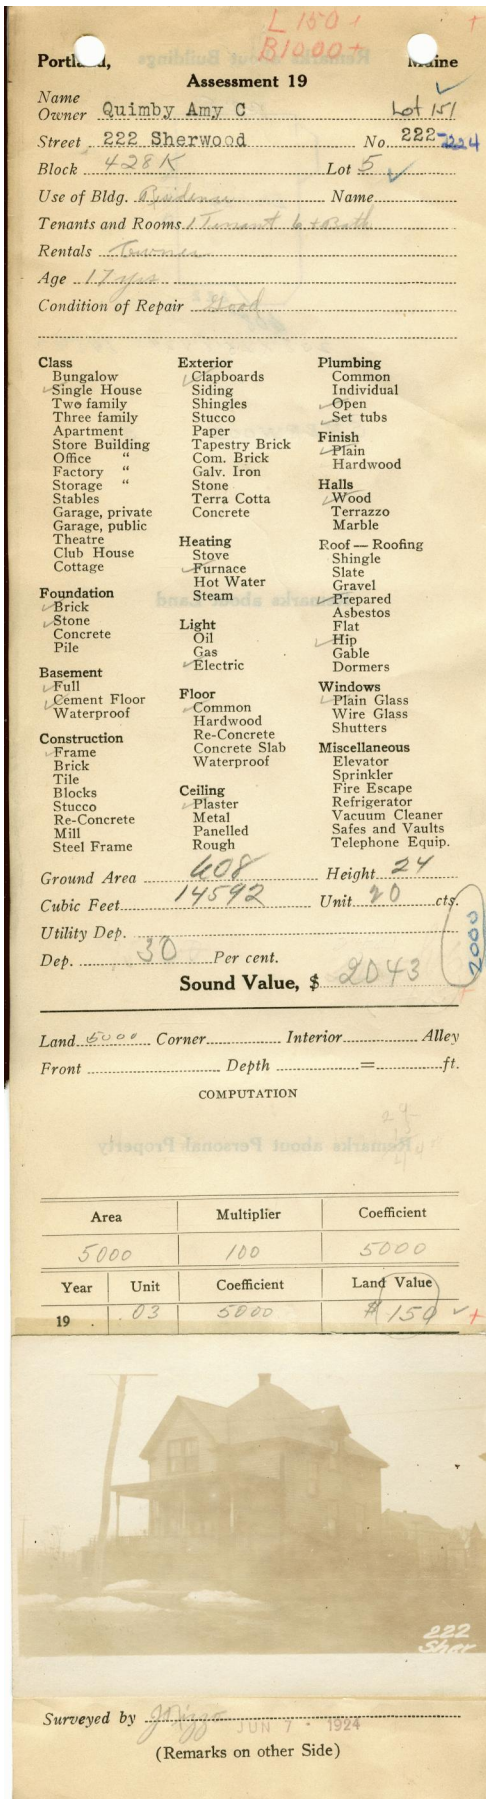 L 150 +
+
B 1000 +
Portland, Maine
Assessment 19
Name
Owner Quimby Amy C Lot 151
Street 222 Sherwood No. 222-224
Block 428 K Lot 5
Use of Bldg. Residence Name
Tenants and Rooms 1 Tenant 6 + Bath
Rentals Owner
Age 17 yrs
Condition of Repair Good
Class
Bungalow
Single House
Two family
Three family
Apartment
Store Building
Office "
Factory "
Storage "
Stables
Garage, private
Garage, public
Theatre
Club House
Cottage
Foundation
Brick
Stone
Concrete
Pile
Basement
Full
Cement Floor
Waterproof
Construction
Frame
Brick
Tile
Blocks
Stucco
Re-Concrete
Mill
Steel Frame
Exterior
Clapboards
Siding
Shingles
Stucco
Paper
Tapestry Brick
Com. Brick
Galv. Iron
Stone
Terra Cotta
Concrete
Heating
Stove
Furnace
Hot Water
Steam
Light
Oil
Gas
Electric
Floor
Common
Hardwood
Re-Concrete
Concrete Slab
Waterproof
Ceiling
Plaster
Metal
Panelled
Rough
Plumbing
Common
Individual
Open
Set tubs
Finish
Plain
Hardwood
Halls
Wood
Terrazzo
Marble
Roof — Roofing
Shingle
Slate
Gravel
Prepared
Asbestos
Flat
Hip
Gable
Dormers
Windows
Plain Glass
Wire Glass
Shutters
Miscellaneous
Elevator
Sprinkler
Fire Escape
Refrigerator
Vacuum Cleaner
Safes and Vaults
Telephone Equip.
Ground Area 608 Height 24
Cubic Feet 14592 Unit 20 cts.
Utility Dep.
2000
Dep. 30 Per cent.
Sound Value, $ 2043
Land 5000 Corner Interior Alley
Front Depth = ft.
COMPUTATION
Area Multiplier Coefficient
5000 100 5000
Year Unit Coefficient Land Value
19 .03 5000 $ 150 +
222
Sher
Surveyed by JUN 7 - 1924
(Remarks on other Side)